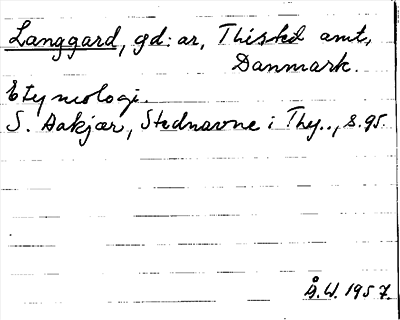 Langgard, gd:ar, Thisted amt,
Danmark.
Etymologi.
S. Aakjær, Stednavne i Thy.., s.95.
Å.W. 1957.